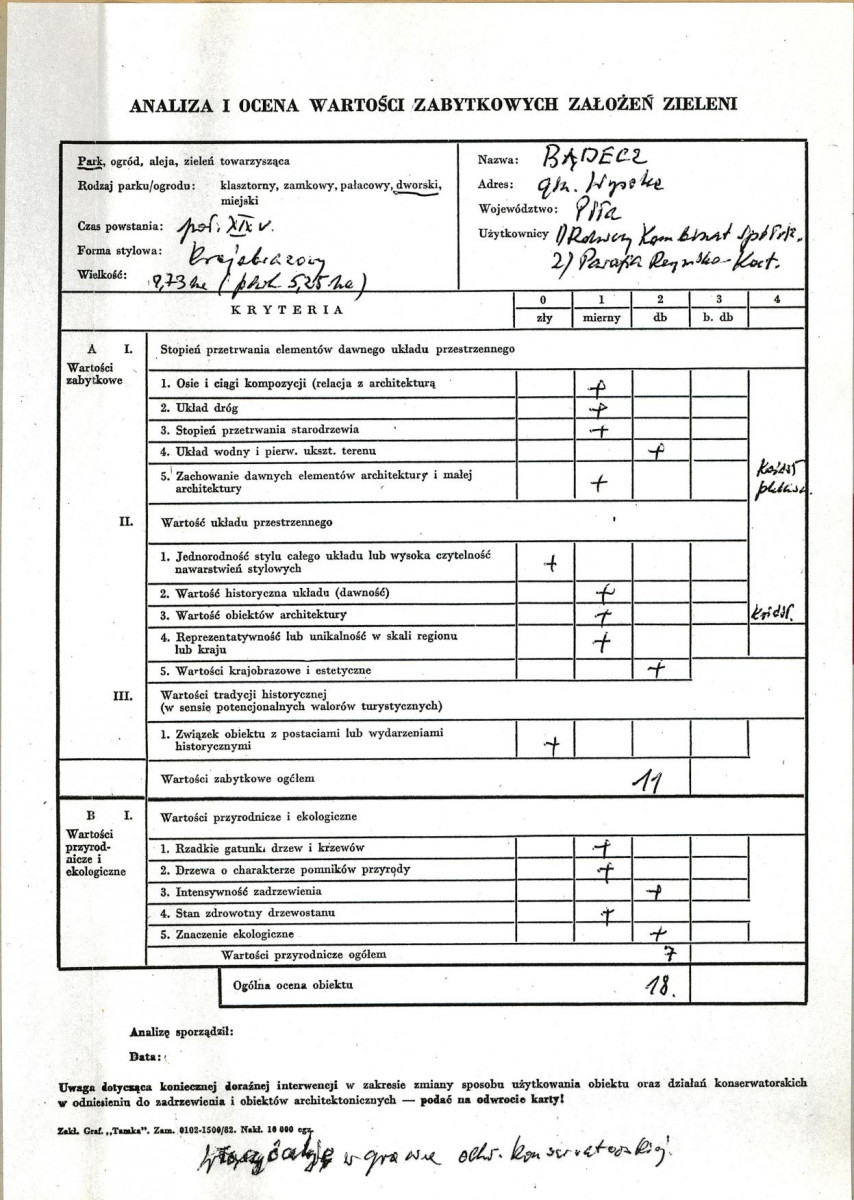 ANALIZA I OCENA WARTOŚCI ZABYTKOWYCH ZAŁOŻEŃ ZIELENI
Park, ogród, aleja, zieleń towarzysząca
Rodzaj parku/ogrodu: klasztorny, zamkowy, pałacowy, dworski,
miejski
Czas powstania: poł. XIX w.
Forma stylowa: krajobrazowy
Wielkość: 9,73 ha (park 5,25 ha)
Nazwa: BĄDECZ
Adres: gm. Wysoka
Województwo: Piła
Użytkownicy 1) Rolniczy Kombinat Spółdz.
2) Parafia Rzymsko-Kat.
KRYTERIA
0 1 2 3 4
zły mierny db b. db
A I. Stopień przetrwania elementów dawnego układu przestrzennego
Wartości
zabytkowe
1. Osie i ciągi kompozycji (relacja z architekturą +
2. Układ dróg +
3. Stopień przetrwania starodrzewia +
4. Układ wodny i pierw. ukszt. terenu +
5. Zachowanie dawnych elementów architektury i małej
architektury + Kościół
II. Wartość układu przestrzennego
1. Jednorodność stylu całego układu lub wysoka czytelność
nawarstwień stylowych +
2. Wartość historyczna układu (dawność) +
3. Wartość obiektów architektury + Kościół.
4. Reprezentatywność lub unikalność w skali regionu
lub kraju +
5. Wartości krajobrazowe i estetyczne +
III. Wartości tradycji historycznej
(w sensie potencjonalnych walorów turystycznych)
1. Związek obiektu z postaciami lub wydarzeniami
historycznymi +
Wartości zabytkowe ogółem 11
B I. Wartości przyrodnicze i ekologiczne
Wartości
przyrod-
nicze i
ekologiczne
1. Rzadkie gatunki drzew i krzewów +
2. Drzewa o charakterze pomników przyrody +
3. Intensywność zadrzewienia +
4. Stan zdrowotny drzewostanu +
5. Znaczenie ekologiczne +
Wartości przyrodnicze ogółem 7
Ogólna ocena obiektu 18.
Analizę sporządził:
Data:
Uwaga dotycząca koniecznej doraźnej interwencji w zakresie zmiany sposobu użytkowania obiektu oraz działań konserwatorskich
w odniesieniu do zadrzewienia i obiektów architektonicznych — podać na odwrocie karty!
Zakł. Graf. „Tamka". Zam. 0102-1500/82. Nakł. 10 000 egz.
w ochr. konserwatorskiej